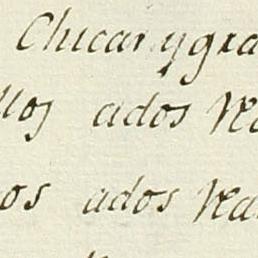 Chicar y gra
llos ados Rea
os ados Rea